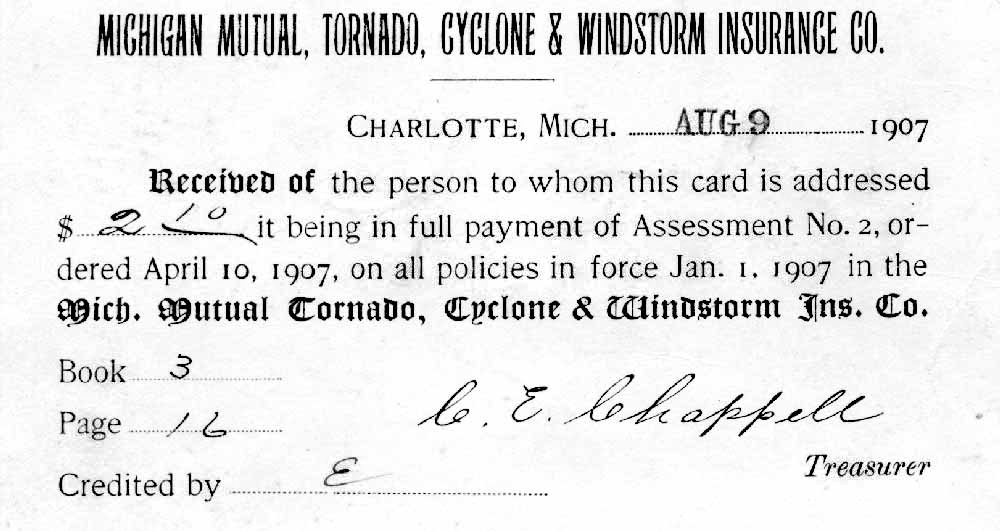 MICHIGAN MUTUAL, TORNADO, CYCLONE & WINDSTORM INSURANCE CO.
CHARLOTTE, MICH. AUG 9 1907
Received of the person to whom this card is addressed
$ 2 10 it being in full payment of Assessment No. 2, or-
dered April 10, 1907, on all policies in force Jan. 1, 1907 in the
Mich. Mutual Tornado, Cyclone & Windstorm Ins. Co.
Book 3
Page 16
C. E. Chappell
Treasurer
Credited by E